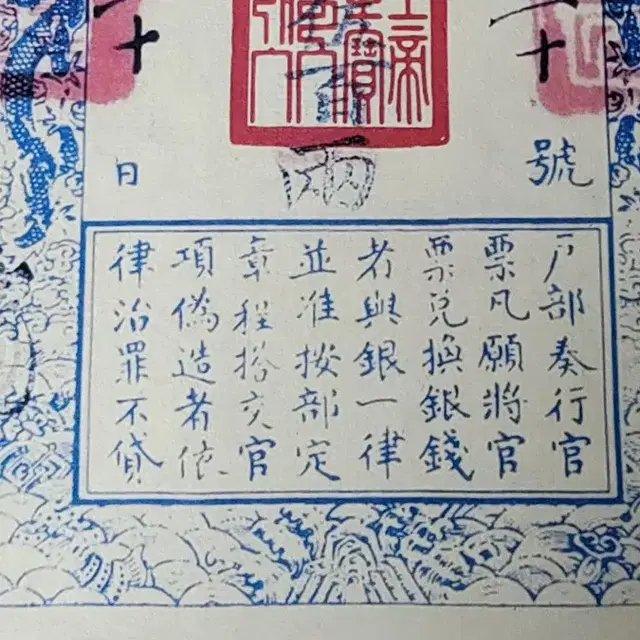 十號
兩
十日
戶部奏行官
票凡願將官
票兌換銀錢
者與銀一律
並准按部定
章程搭交官
項偽造者依
律治罪不貸